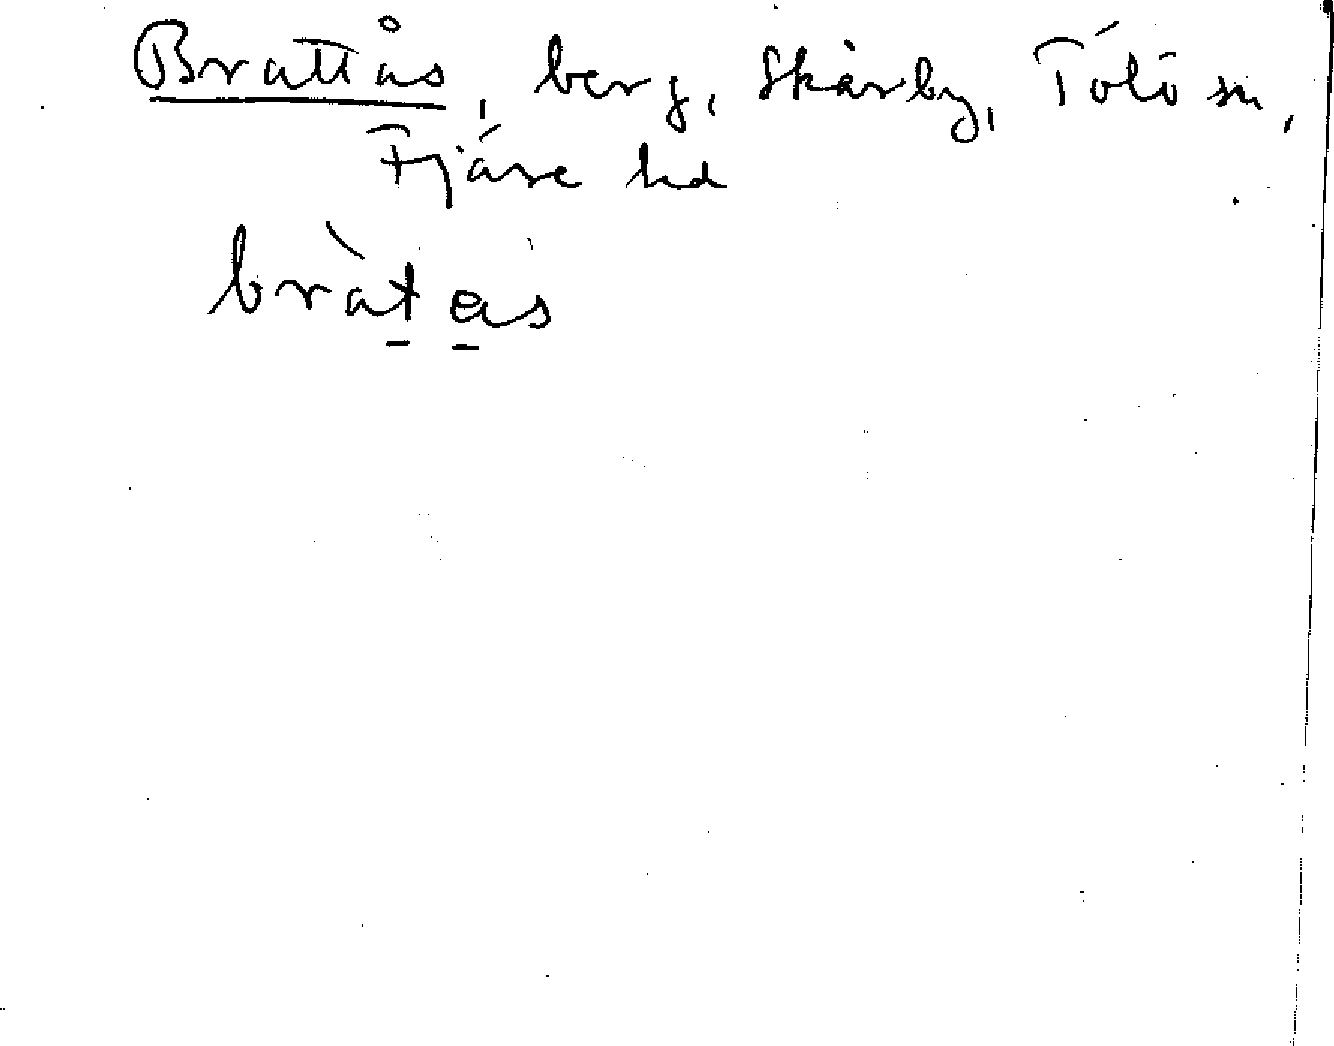 Brattås, berg, Skårby, Tölö sn,
Fjäre hd
bràt as